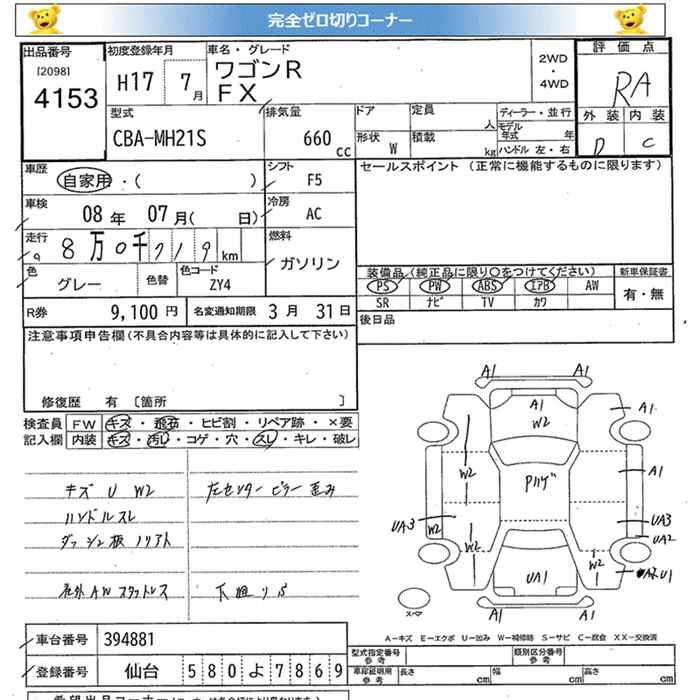 完全ゼロ切りコーナー
出品番号
[2098]
4153
初度登録年月
H17 7月
車名・グレード
ワゴンR
FX
2WD
・
4WD
評価点
RA
外装 内装
D C
型式
CBA-MH21S
排気量
660 cc
ドア
定員 人
形状 W
積載 kg
ディーラー・並行
モデル年式 年
ハンドル 左・右
車歴
自家用・( )
シフト
F5
セールスポイント (正常に機能するものに限ります)
車検
08年 07月( 日)
冷房
AC
走行
8万0千719km
燃料
ガソリン
色
グレー
色替
色コード
ZY4
装備品(純正品に限り○をつけてください)
新車保証書
PS PW ABS エアB AW
有・無
SR ナビ TV カワ
R券 9,100円
名変通知期限 3月 31日
後日品
注意事項申告欄(不具合内容等は具体的に記入して下さい)
修復歴 有 [箇所 ]
検査員記入欄
FW キズ・飛石・ヒビ割・リペア跡・×要
内装 キズ・汚レ・コゲ・穴・スレ・キレ・破レ
キズ U W2
左センターピラー歪み
ハンドルスレ
ダッシュ板ノリアト
社外AWスタッドレス
下廻りS
A1 A1
A1
W2
A1
W2
Pハゲ
A1
UA3
W2
UA3
UA2
W2
W2
UA1
A1 A1
スペア
A-キズ E-エクボ U-凹み W-補修跡 S-サビ C-腐食 XX-交換済
車台番号 394881
登録番号 仙台 580よ7869
型式指定番号
参考
類別区分番号
参考
車庫証明用
参考
長さ cm 幅 cm 高さ cm